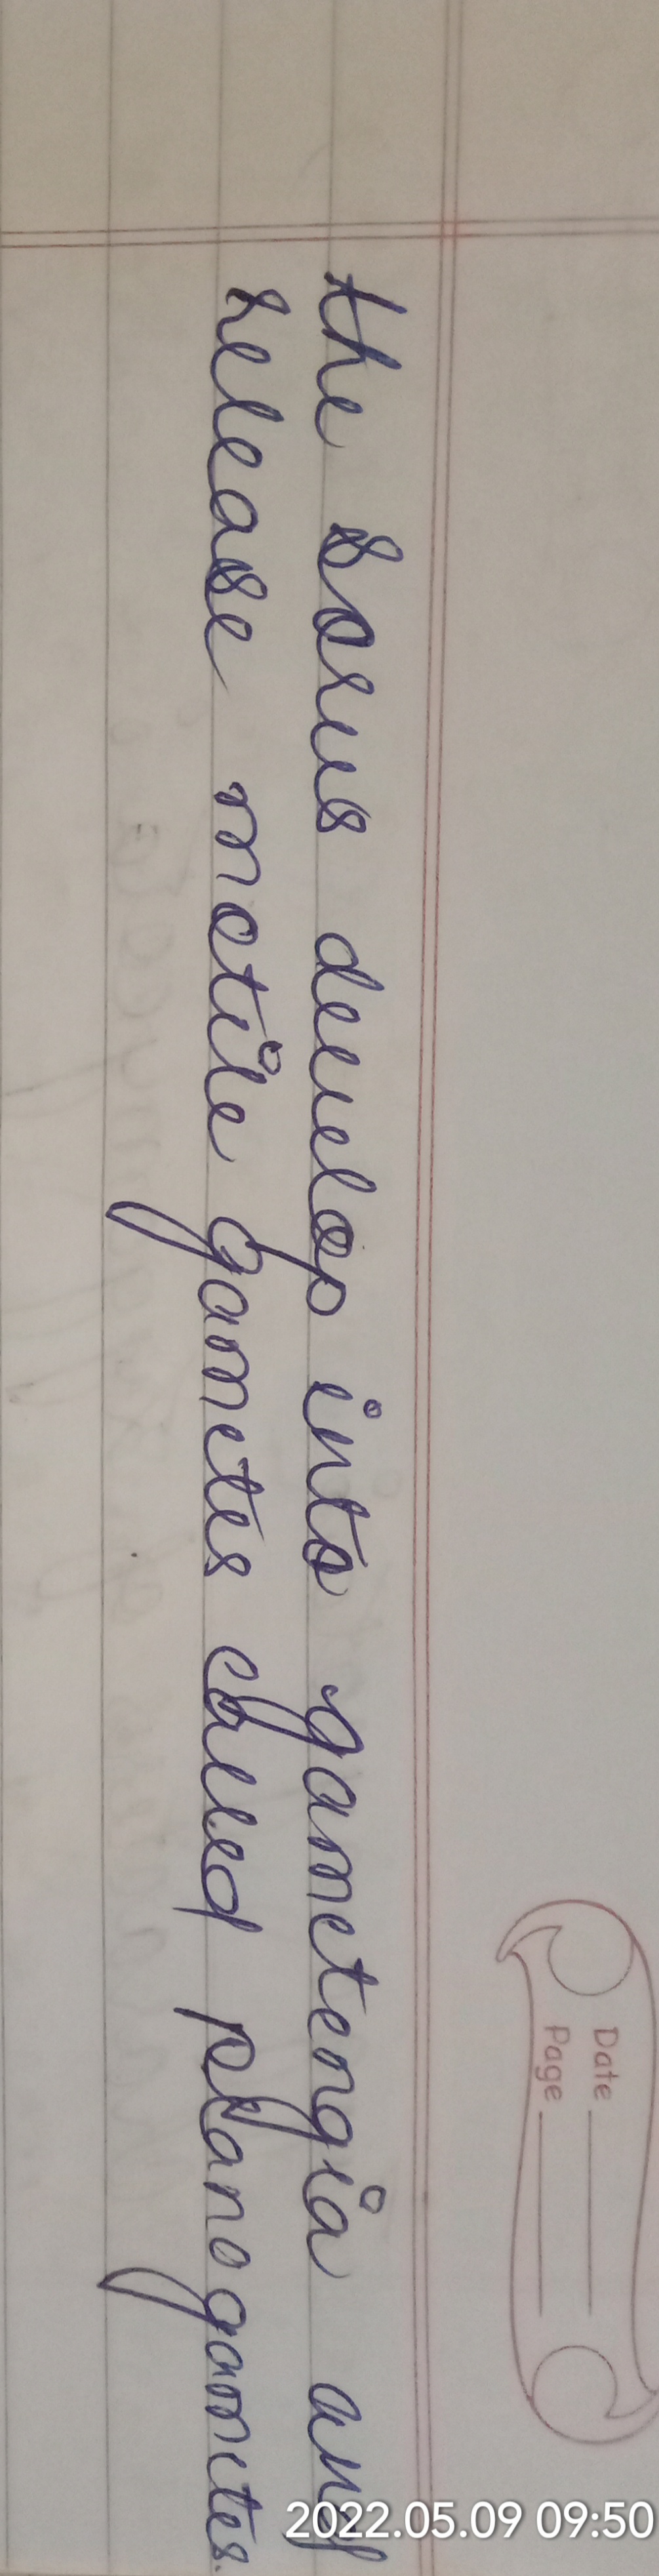 Date
Page
the sorus develop into gametengia and
release motile gametes called planogametes.
2022.05.09 09:50